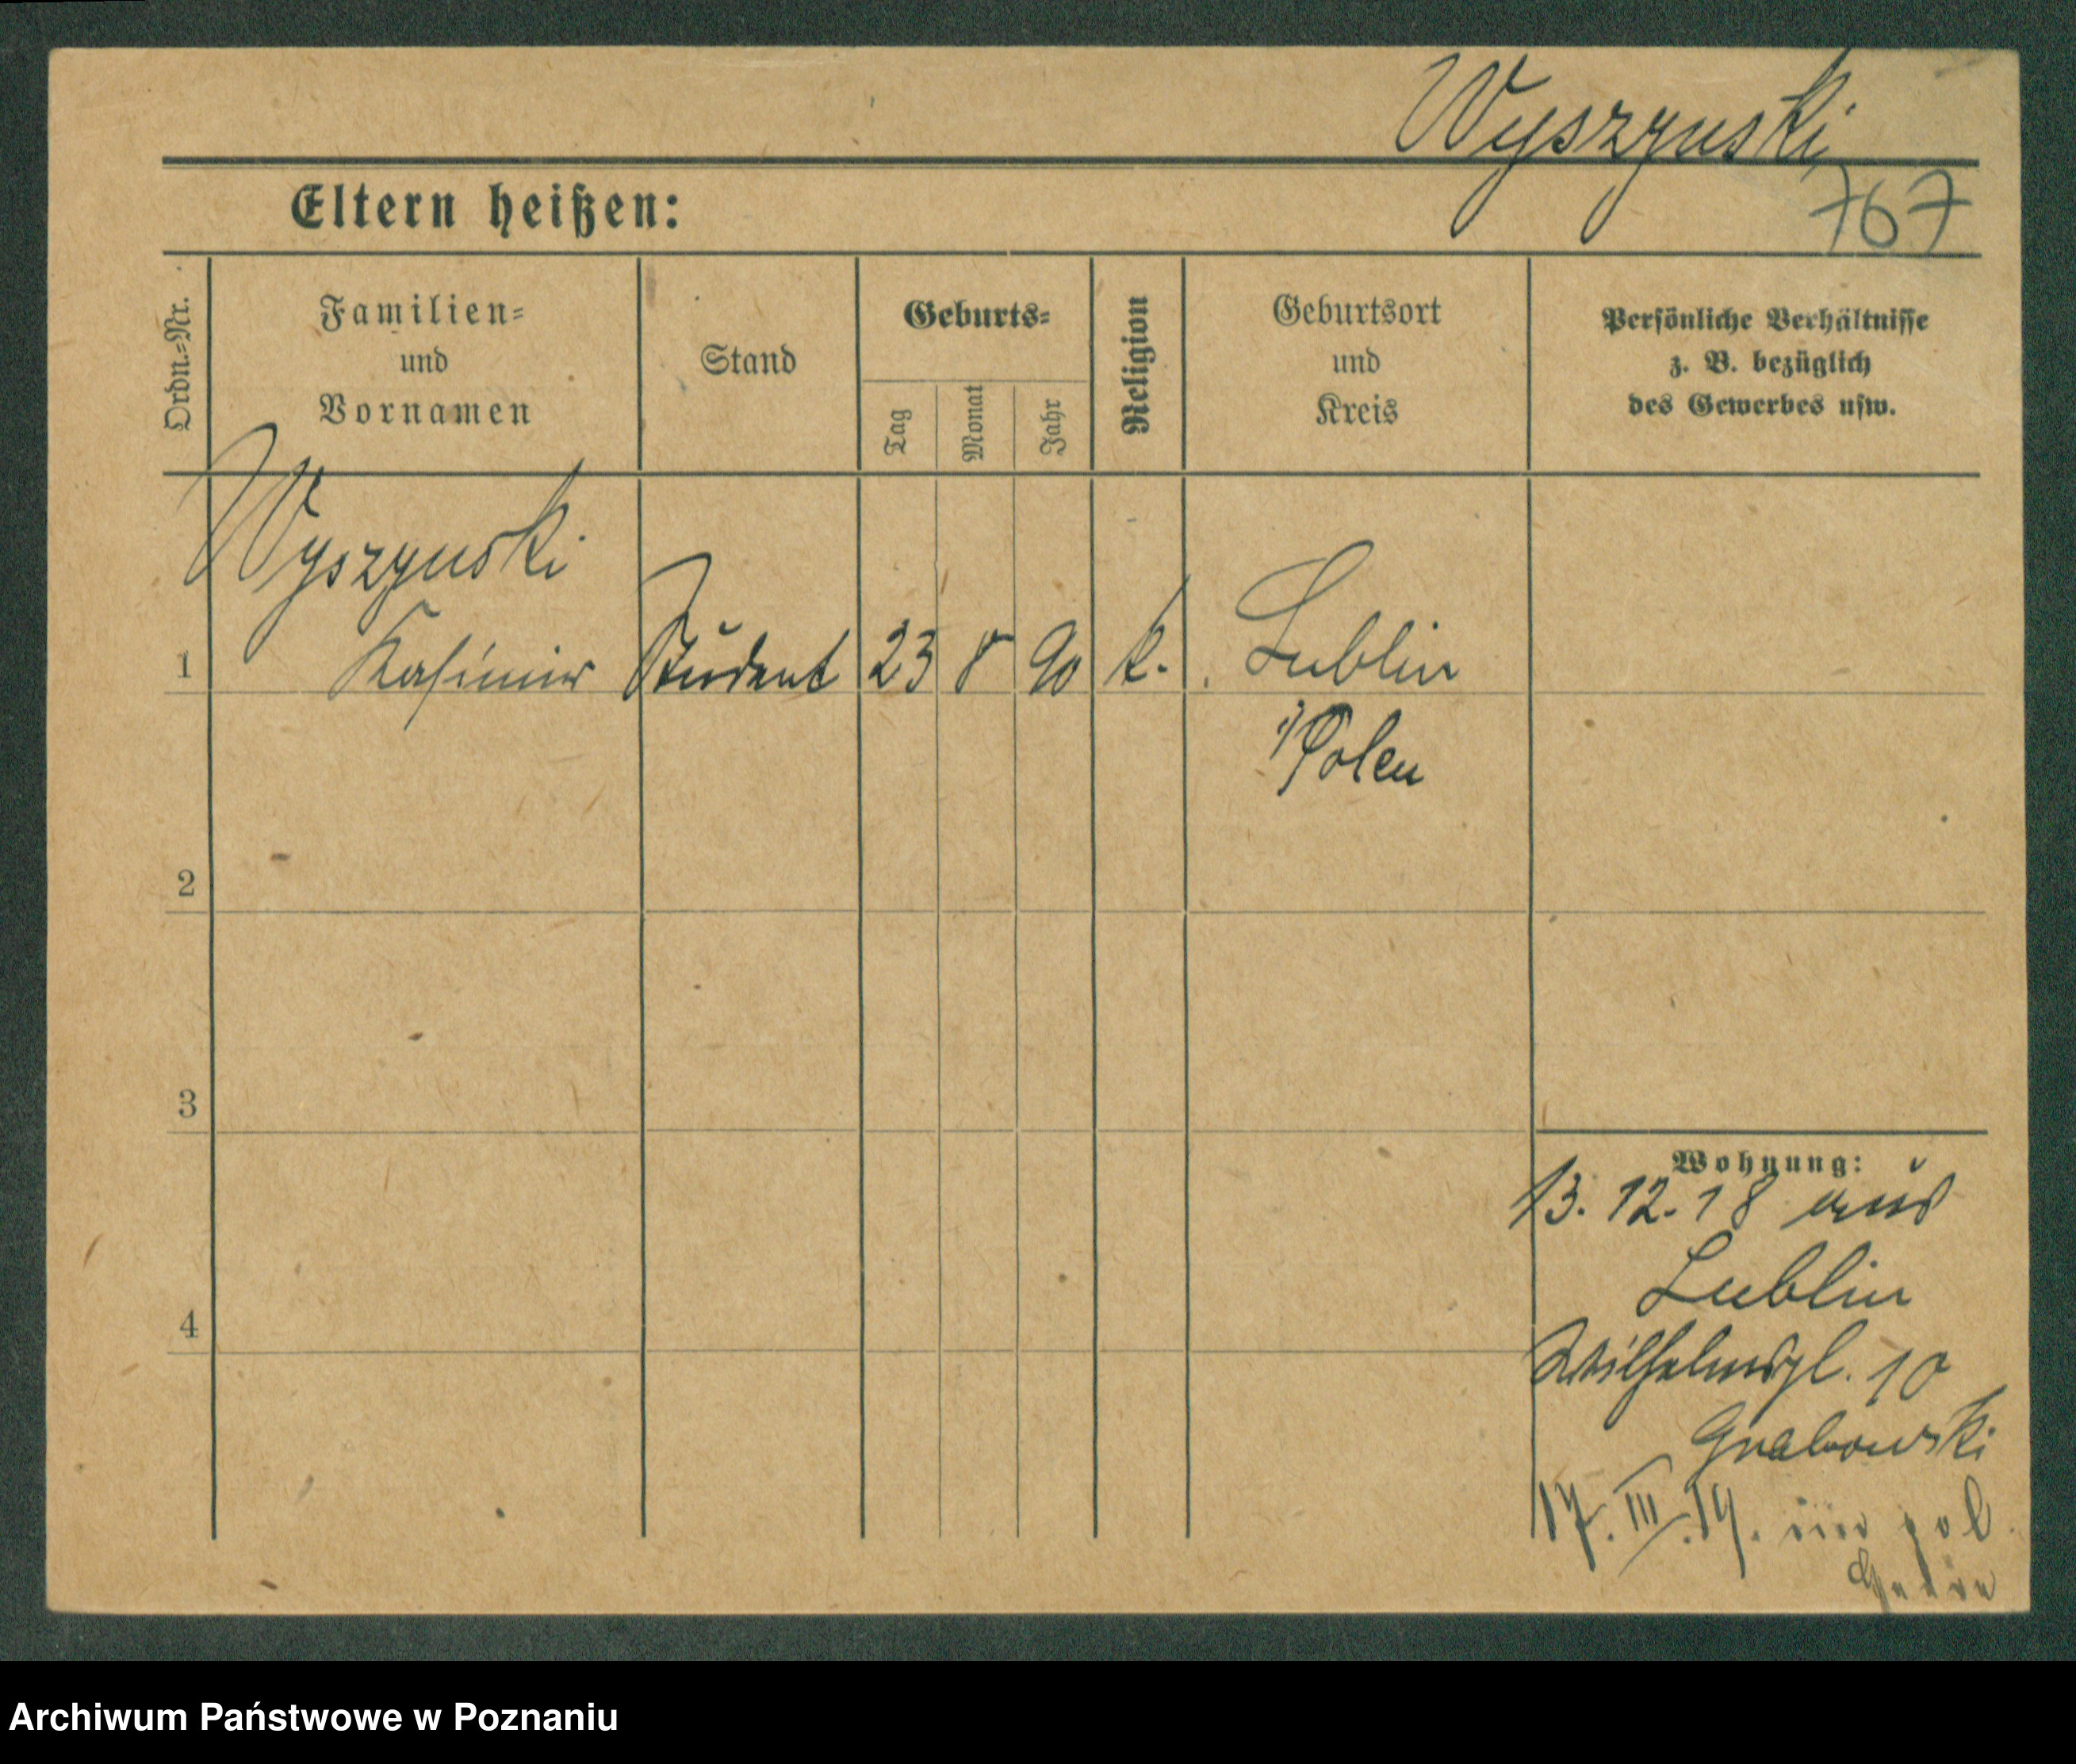 Wyszynski
767
Eltern heißen:
Ordn.=Nr.
Familien=
und
Vornamen
Stand
Geburts=
Tag
Monat
Jahr
Religion
Geburtsort
und
Kreis
Persönliche Verhältnisse
z. B. bezüglich
des Gewerbes usw.
Wyszynski
1 Kasimir Student 23 8 90 k. Lublin
i/Polen
2
3
Wohnung:
13. 12. 18 aus
Lublin
4
Wilhelmspl. 10
Grabowski
17. III. 19. in pol.
Archiwum Państwowe w Poznaniu